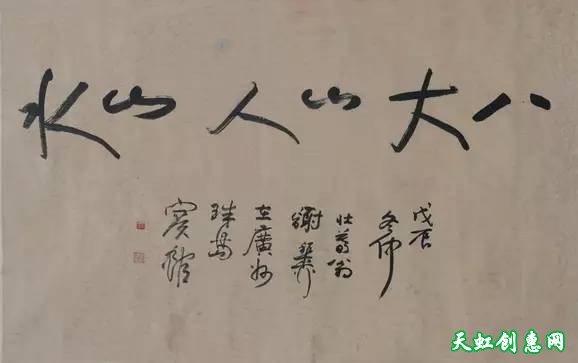 八大山人山水
戊辰
冬仲
壮暮翁
謝稚柳
在廣州
珠島
賓館
天虹创惠网